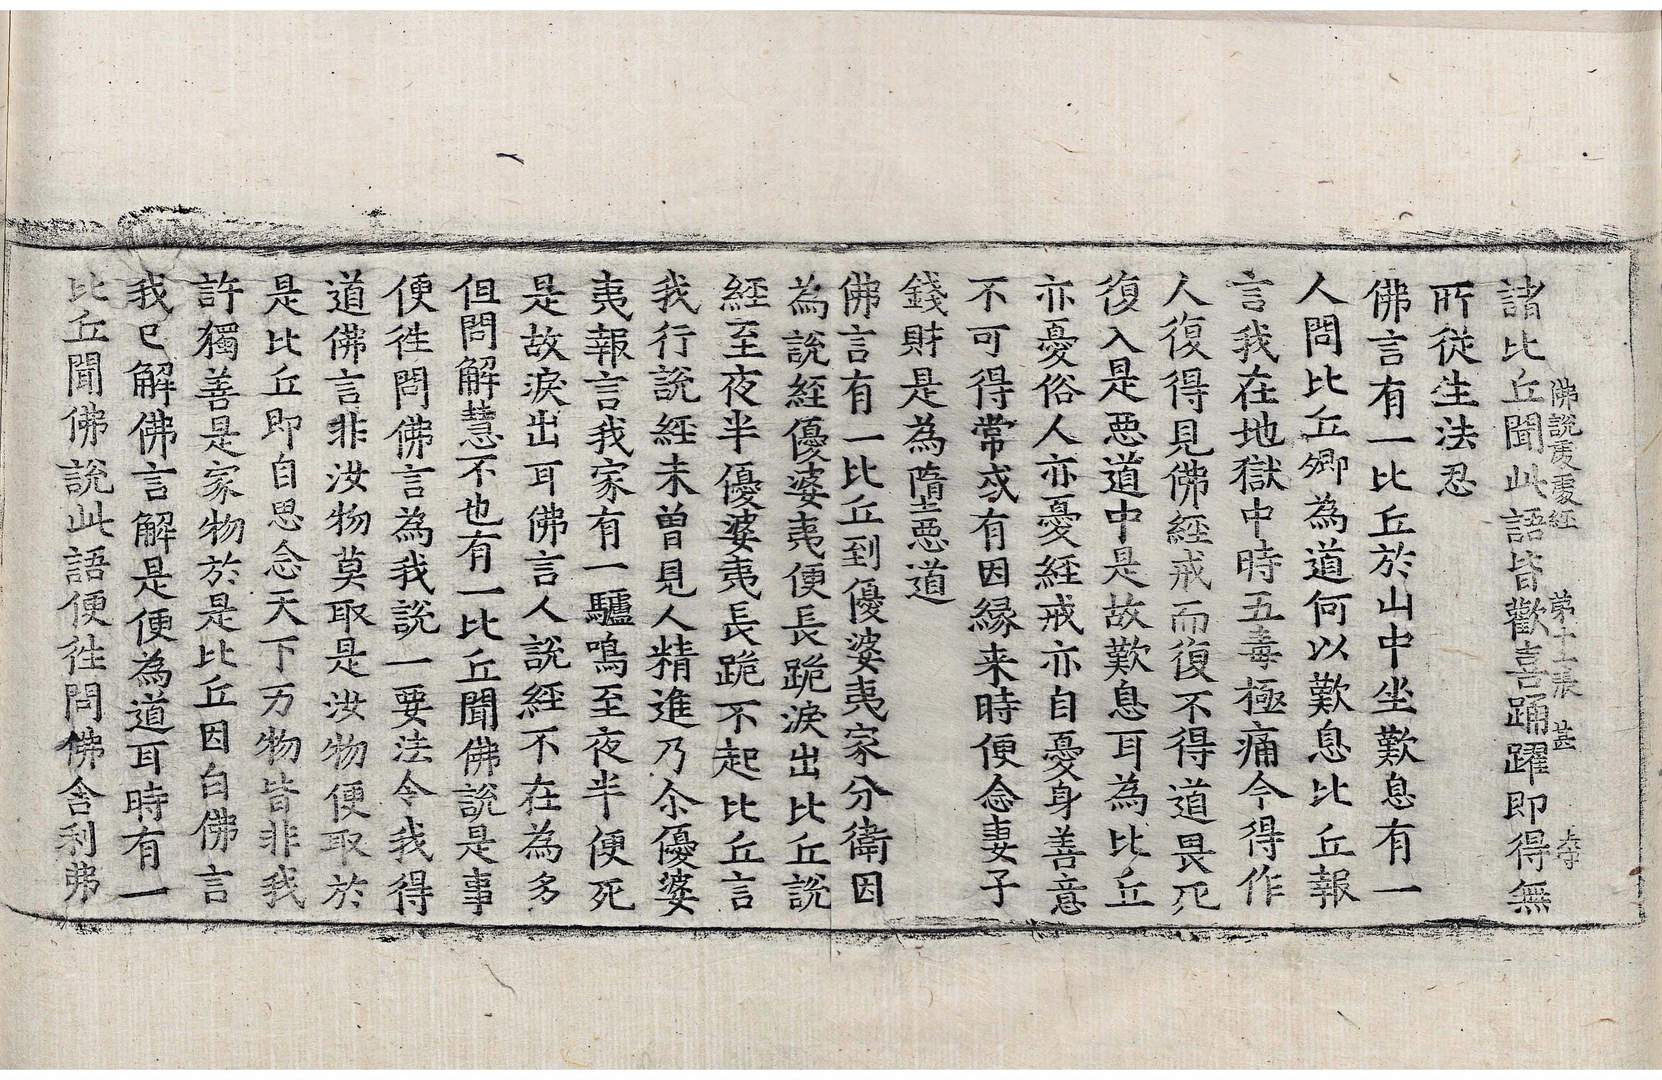 佛說處處經 第十二張 甚
諸比丘聞此語皆歡喜踊躍即得無
所從生法忍
佛言有一比丘於山中坐歎息有一
人問比丘卿為道何以歎息比丘報
言我在地獄中時五毒極痛今得作
人復得見佛經戒而復不得道畏死
復入是惡道中是故歎息耳為比丘
亦憂俗人亦憂經戒亦自憂身善意
不可得常或有因緣来時便念妻子
錢財是為墮惡道
佛言有一比丘到優婆夷家分衛因
為說經優婆夷便長跪淚出比丘說
經至夜半優婆夷長跪不起比丘言
我行說經未曾見人精進乃尒優婆
夷報言我家有一驢鳴至夜半便死
是故淚出耳佛言人說經不在為多
但問解慧不也有一比丘聞佛說是事
便徃問佛言為我說一要法令我得
道佛言非汝物莫取是汝物便取於
是比丘即自思念天下万物皆非我
許獨善是家物於是比丘因白佛言
我已解佛言解是便為道耳時有一
比丘聞佛說此語便徃問佛舍利弗